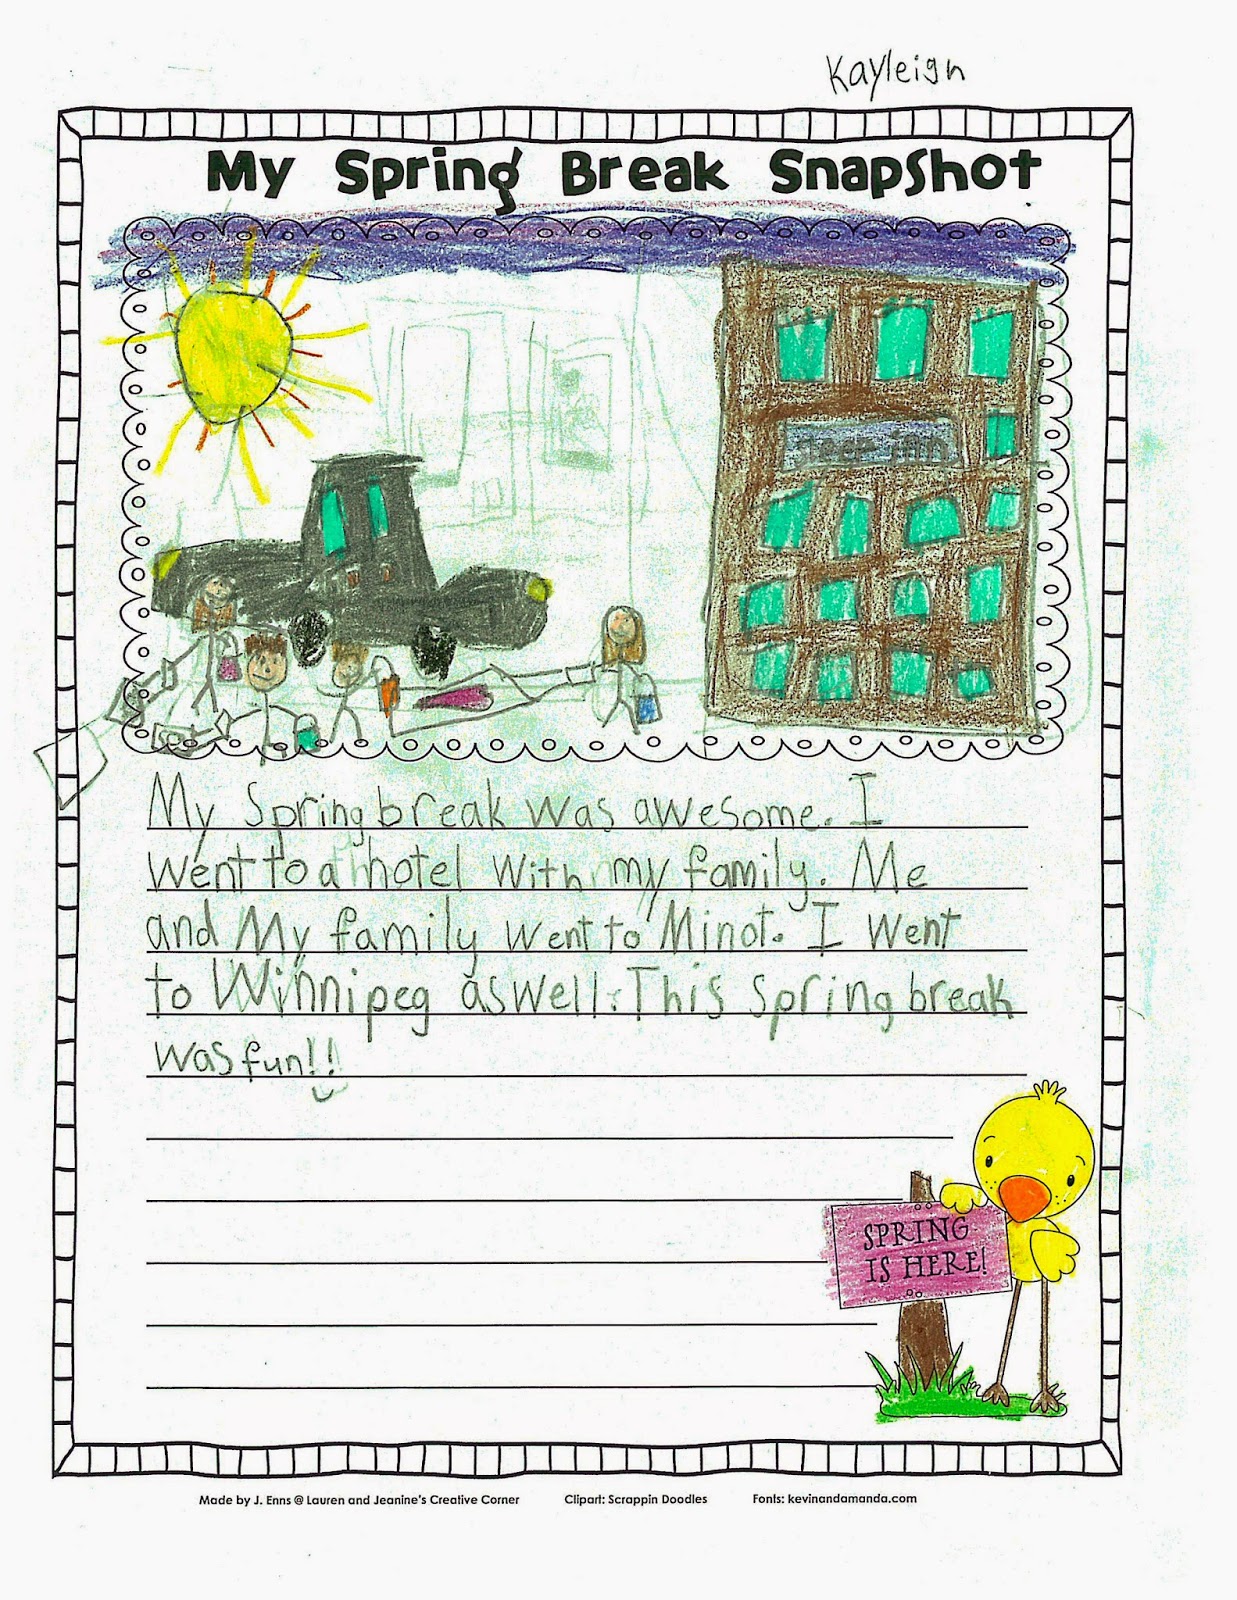 Kayleigh
My Spring Break Snapshot
Sleep Inn
My Spring break was awesome. I
went to a hotel with my family. Me
and My family went to Minot. I went
to Winnipeg aswell. This spring break
was fun!!
SPRING
IS HERE!
Made by J. Enns @ Lauren and Jeanine's Creative Corner Clipart: Scrappin Doodles Fonts: kevinandamanda.com